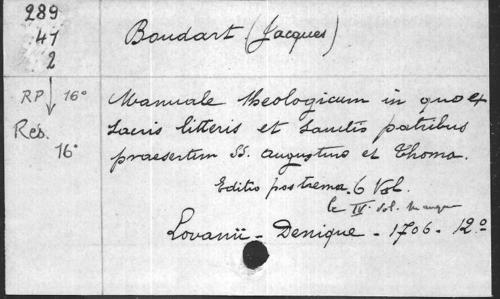 289
47
2
RP 16°
Rés.
16°
Boudart (Jacques)
Manuale theologicum in quo ex
sacris litteris et sanctis patribus
praesertim SS. Augustino et Thoma.
Editio postrema. 6 Vol.
le IVe vol. manque
Lovanii - Denique - 1706 - 12°